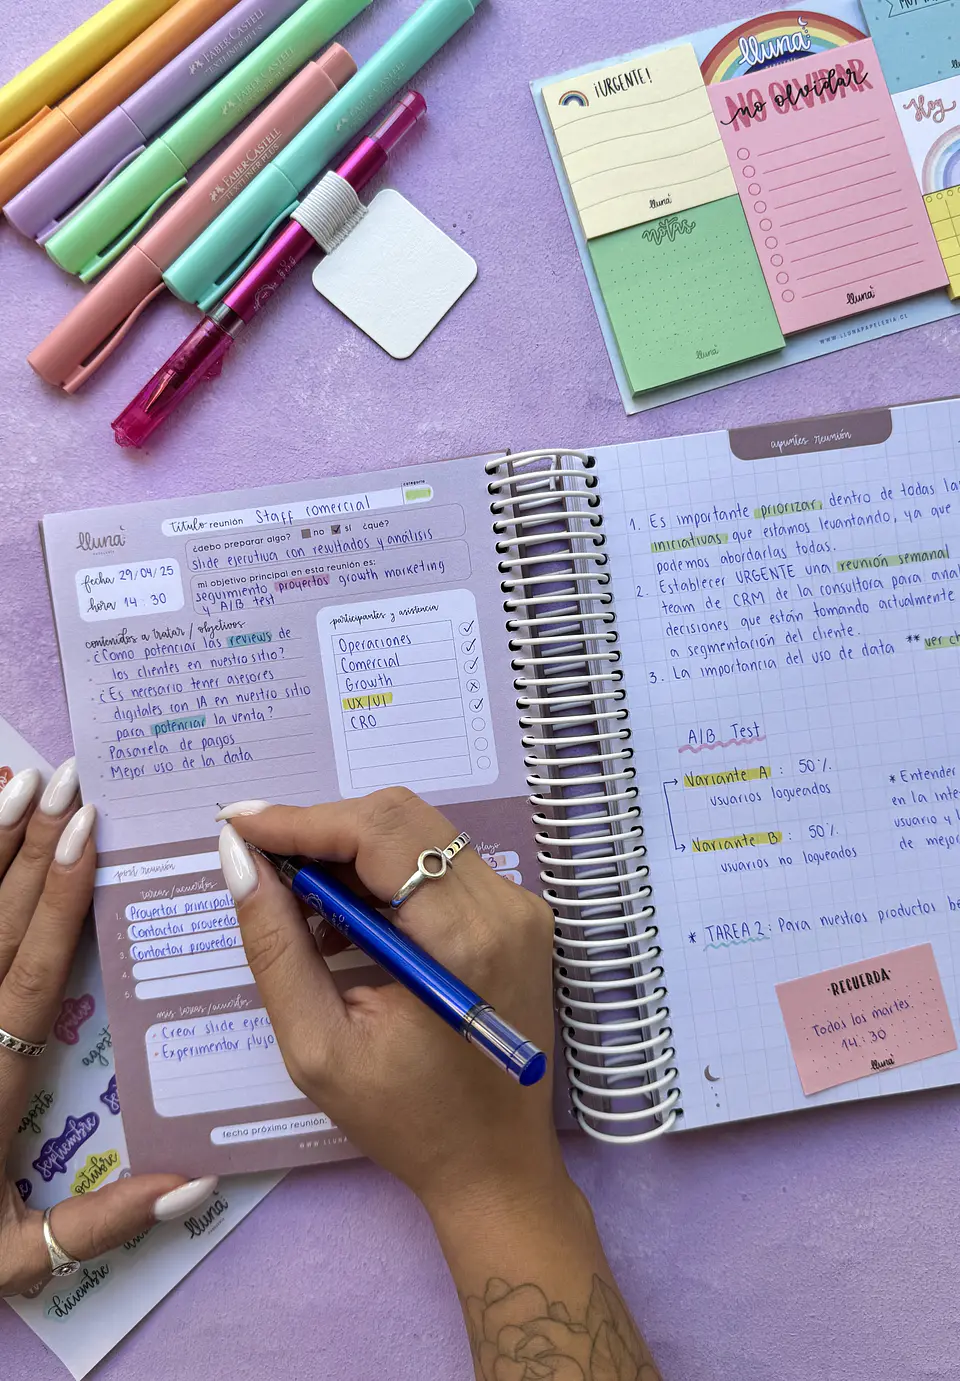 FABER-CASTELL
TEXTLINER PLUS
FABER-CASTELL
TEXTLINER PLUS
FABER-CASTELL
TEXTLINER PLUS
FABER-CASTELL
TEXTLINER PLUS
lluna
¡URGENTE!
lluna
NO OLVIDAR
no olvidar
lluna
notas
lluna
Hoy
WWW.LLUNAPAPELERIA.CL
lluna
PAPELERÍA
título reunión Staff comercial
categoría
¿debo preparar algo? no sí ¿qué?
slide ejecutiva con resultados y análisis
mi objetivo principal en esta reunión es:
seguimiento proyectos growth marketing
y A/B test
fecha 29/04/25
hora 14:30
contenidos a tratar / objetivos
¿Cómo potenciar las reviews de
los clientes en nuestro sitio?
¿Es necesario tener asesores
digitales con IA en nuestro sitio
para potenciar la venta?
Pasarela de pagos
Mejor uso de la data
participantes y asistencia
Operaciones
Comercial
Growth
UX/UI
CRO
post reunión
tareas/acuerdos
plazo
1. Proyectar principal
2. Contactar proveedo
3. Contactar proveedor
4.
5.
3
mis tareas/acuerdos
- Crear slide ejecu
- Experimentar flujo
fecha próxima reunión:
WWW.LLUNA
apuntes reunión
1. Es importante priorizar, dentro de todas la
iniciativas que estamos levantando, ya que
podemos abordarlas todas.
2. Establecer URGENTE una reunión semanal
team de CRM de la consultora para anal
decisiones que están tomando actualmente
a segmentación del cliente.
3. La importancia del uso de data ** ver ch
A/B Test
Variante A : 50%
usuarios logueados
Variante B : 50%
usuarios no logueados
* Entender
en la inte
usuario y l
de mejor
* TAREA 2: Para nuestros productos be
·RECUERDA·
Todos los martes
14:30
lluna
julio
agosto
agosto
septiembre
octubre
diciembre
lluna